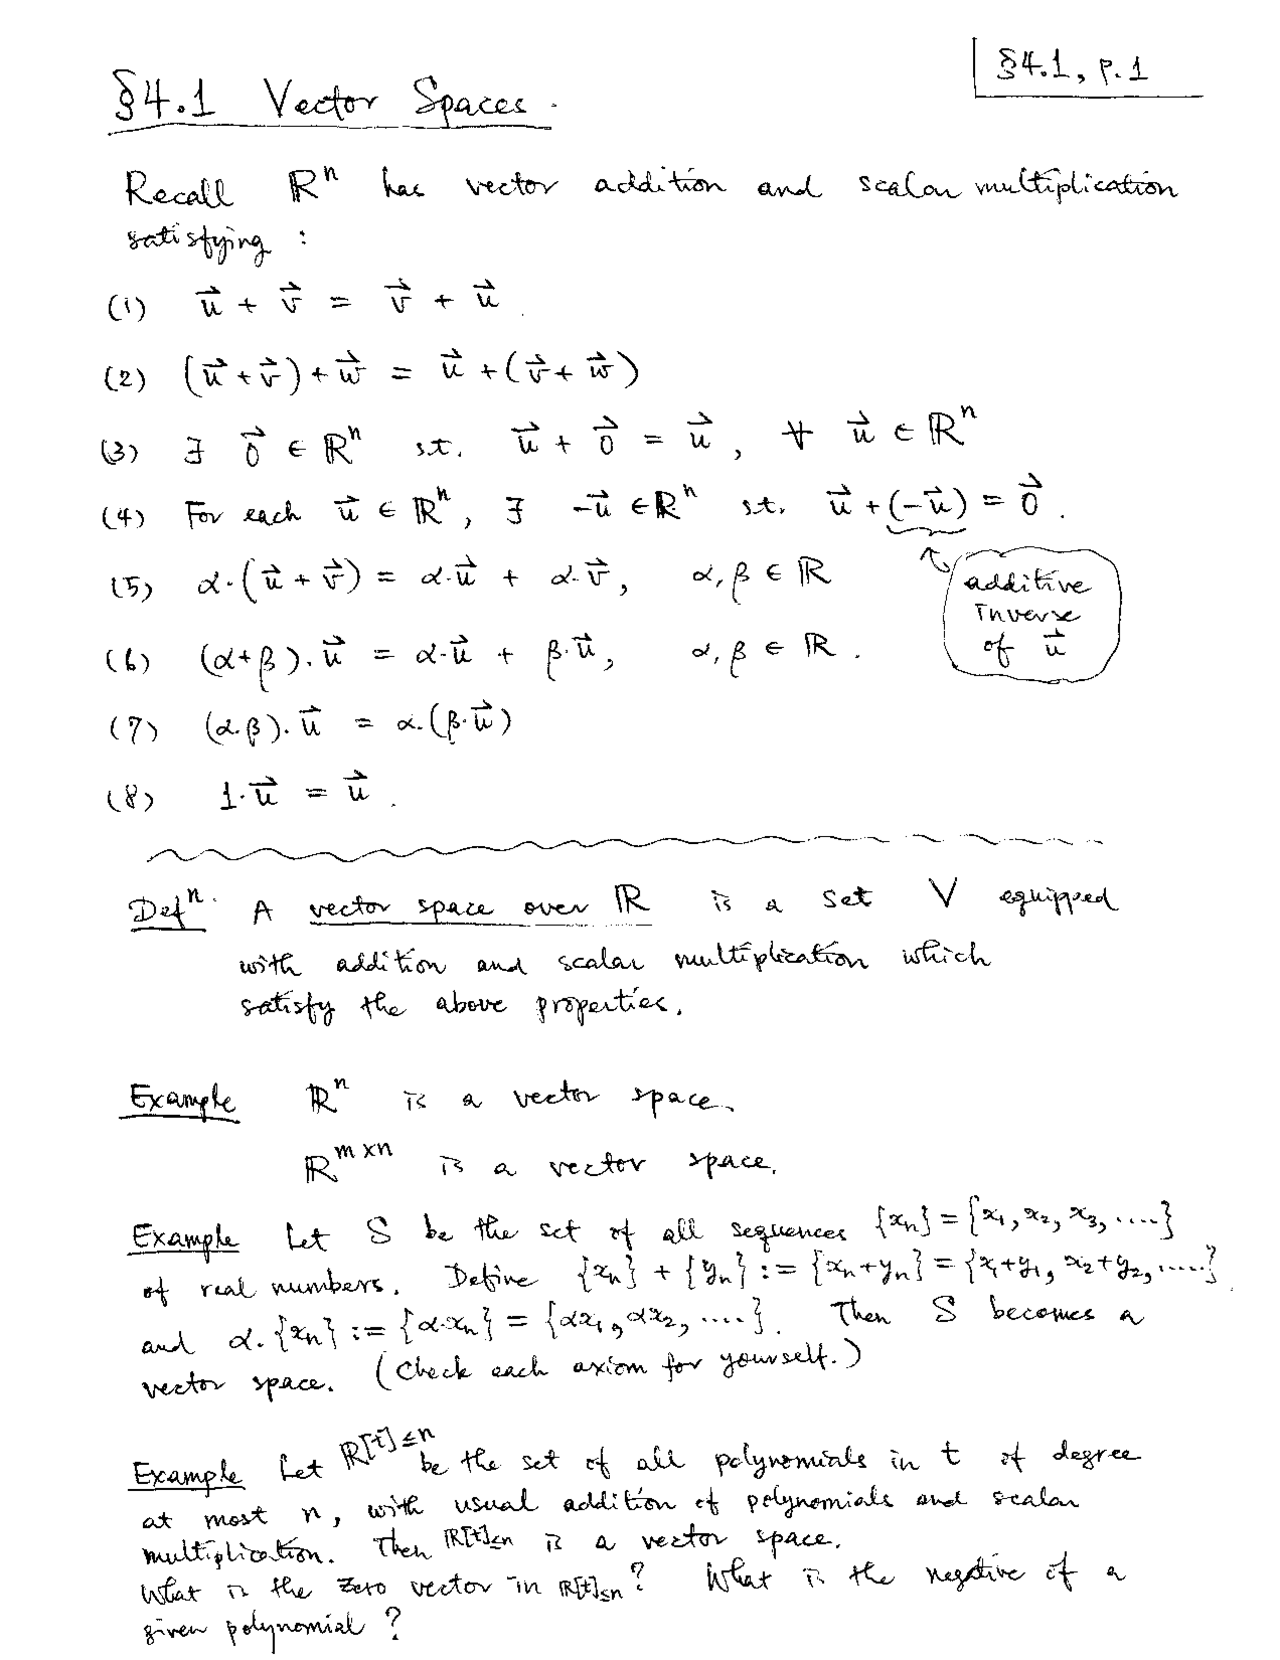 §4.1, p.1
§4.1 Vector Spaces.
Recall ℝⁿ has vector addition and scalar multiplication
satisfying :
(1) u⃗ + v⃗ = v⃗ + u⃗.
(2) (u⃗+v⃗)+w⃗ = u⃗+(v⃗+w⃗)
(3) ∃ 0⃗ ∈ ℝⁿ s.t. u⃗ + 0⃗ = u⃗, ∀ u⃗ ∈ ℝⁿ
(4) For each u⃗ ∈ ℝⁿ, ∃ -u⃗ ∈ ℝⁿ s.t. u⃗+(-u⃗) = 0⃗.
(5) α·(u⃗+v⃗) = α·u⃗ + α·v⃗, α, β ∈ ℝ
additive
inverse
of u⃗
(6) (α+β)·u⃗ = α·u⃗ + β·u⃗, α, β ∈ ℝ.
(7) (α·β)·u⃗ = α·(β·u⃗)
(8) 1·u⃗ = u⃗.
Defⁿ. A vector space over ℝ is a set V equipped
with addition and scalar multiplication which
satisfy the above properties.
Example ℝⁿ is a vector space.
ℝ^{m×n} is a vector space.
Example Let S be the set of all sequences {xₙ} = {x₁, x₂, x₃, ....}
of real numbers. Define {xₙ} + {yₙ} := {xₙ+yₙ} = {x₁+y₁, x₂+y₂, .....}
and α·{xₙ} := {α·xₙ} = {αx₁, αx₂, ....}. Then S becomes a
vector space. (Check each axiom for yourself.)
Example Let ℝ[t]≤n be the set of all polynomials in t of degree
at most n, with usual addition of polynomials and scalar
multiplication. Then ℝ[t]≤n is a vector space.
What is the zero vector in ℝ[t]≤n? What is the negative of a
given polynomial ?